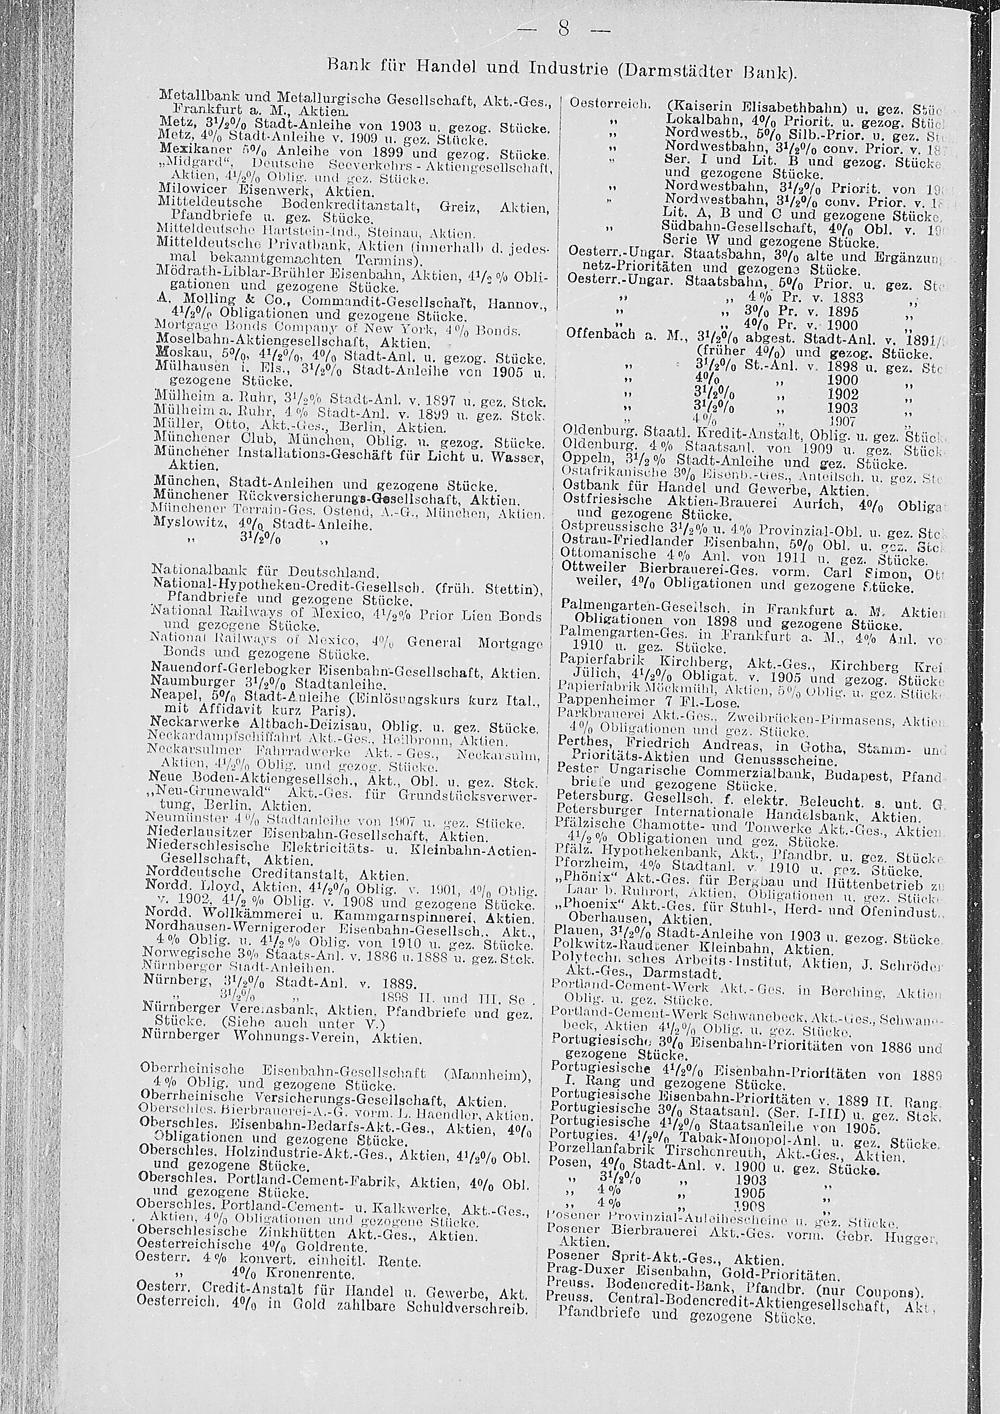 — 8 —
Bank für Handel und Industrie (Darmstädter Bank).
Metallbank und Metallurgische Gesellschaft, Akt.-Ges.,
Frankfurt a. M., Aktien.
Metz, 3½% Stadt-Anleihe von 1903 u. gezog. Stücke.
Metz, 4% Stadt-Anleihe v. 1909 u. gez. Stücke.
Mexikaner 5% Anleihe von 1899 und gezog. Stücke.
„Midgard“, Deutsche Seeverkehrs-Aktiengesellschaft,
Aktien, 4½% Oblig. und gez. Stücke.
Milowicer Eisenwerk, Aktien.
Mitteldeutsche Bodenkreditanstalt, Greiz, Aktien,
Pfandbriefe u. gez. Stücke.
Mitteldeutsche Hartstein-Ind., Steinau, Aktien.
Mitteldeutsche Privatbank, Aktien (innerhalb d. jedes-
mal bekanntgemachten Termins).
Mödrath-Liblar-Brühler Eisenbahn, Aktien, 4½% Obli-
gationen und gezogene Stücke.
A. Molling & Co., Commandit-Gesellschaft, Hannov.,
4½% Obligationen und gezogene Stücke.
Mortgage Bonds Company of New York, 4% Bonds.
Moselbahn-Aktiengesellschaft, Aktien.
Moskau, 5%, 4½%, 4% Stadt-Anl. u. gezog. Stücke.
Mülhausen i. Els., 3½% Stadt-Anleihe von 1905 u.
gezogene Stücke.
Mülheim a. Ruhr, 3½% Stadt-Anl. v. 1897 u. gez. Stck.
Mülheim a. Ruhr, 4% Stadt-Anl. v. 1899 u. gez. Stck.
Müller, Otto, Akt.-Ges., Berlin, Aktien.
Münchener Club, München, Oblig. u. gezog. Stücke.
Münchener Installations-Geschäft für Licht u. Wasser,
Aktien.
München, Stadt-Anleihen und gezogene Stücke.
Münchener Rückversicherungs-Gesellschaft, Aktien.
Münchener Terrain-Ges. Ostend, A.-G., München, Aktien.
Myslowitz, 4% Stadt-Anleihe.
„ 3½% „
Nationalbank für Deutschland.
National-Hypotheken-Credit-Gesellsch. (früh. Stettin),
Pfandbriefe und gezogene Stücke.
National Railways of Mexico, 4½% Prior Lien Bonds
und gezogene Stücke.
National Railways of Mexico, 4% General Mortgage
Bonds und gezogene Stücke.
Nauendorf-Gerlebogker Eisenbahn-Gesellschaft, Aktien.
Naumburger 3½% Stadtanleihe.
Neapel, 5% Stadt-Anleihe (Einlösungskurs kurz Ital.,
mit Affidavit kurz Paris).
Neckarwerke Altbach-Deizisau, Oblig. u. gez. Stücke.
Neckardampfschiffahrt Akt.-Ges., Heilbronn, Aktien.
Neckarsulmer Fahrradwerke Akt.-Ges., Neckarsulm,
Aktien, 4½% Oblig. und gezog. Stücke.
Neue Boden-Aktiengesellsch., Akt., Obl. u. gez. Stck.
„Neu-Grunewald“ Akt.-Ges. für Grundstücksverwer-
tung, Berlin, Aktien.
Neumünster 4% Stadtanleihe von 1907 u. gez. Stücke.
Niederlausitzer Eisenbahn-Gesellschaft, Aktien.
Niederschlesische Elektricitäts- u. Kleinbahn-Actien-
Gesellschaft, Aktien.
Norddeutsche Creditanstalt, Aktien.
Nordd. Lloyd, Aktien, 4½% Oblig. v. 1901, 4% Oblig.
v. 1902, 4½% Oblig. v. 1908 und gezogene Stücke.
Nordd. Wollkämmerei u. Kammgarnspinnerei, Aktien.
Nordhausen-Wernigeroder Eisenbahn-Gesellsch., Akt.,
4% Oblig. u. 4½% Oblig. von 1910 u. gez. Stücke.
Norwegische 3% Staats-Anl. v. 1886 u. 1888 u. gez. Stck.
Nürnberger Stadt-Anleihen.
Nürnberg, 3½% Stadt-Anl. v. 1889.
„ 3½% „ 1898 II. und III. Se .
Nürnberger Vereinsbank, Aktien, Pfandbriefe und gez.
Stücke. (Siehe auch unter V.)
Nürnberger Wohnungs-Verein, Aktien.
Oberrheinische Eisenbahn-Gesellschaft (Mannheim),
4% Oblig. und gezogene Stücke.
Oberrheinische Versicherungs-Gesellschaft, Aktien.
Oberschles. Bierbrauerei-A.-G. vorm. L. Haendler, Aktien.
Oberschles. Eisenbahn-Bedarfs-Akt.-Ges., Aktien, 4%
Obligationen und gezogene Stücke.
Oberschles. Holzindustrie-Akt.-Ges., Aktien, 4½% Obl.
und gezogene Stücke.
Oberschles. Portland-Cement-Fabrik, Aktien, 4% Obl.
und gezogene Stücke.
Oberschles. Portland-Cement- u. Kalkwerke, Akt.-Ges.,
Aktien, 4% Obligationen und gezogene Stücke.
Oberschlesische Zinkhütten Akt.-Ges., Aktien.
Oesterreichische 4% Goldrente.
Oesterr. 4% konvert. einheitl. Rente.
„ 4% Kronenrente.
Oesterr. Credit-Anstalt für Handel u. Gewerbe, Akt.
Oesterreich. 4% in Gold zahlbare Schuldverschreib.
Oesterreich. (Kaiserin Elisabethbahn) u. gez. Stüc
„ Lokalbahn, 4% Priorit. u. gezog. Stüc
„ Nordwestb., 5% Silb.-Prior. u. gez. St
„ Nordwestbahn, 3½% conv. Prior. v. 18
Ser. I und Lit. B und gezog. Stücke
und gezogene Stücke.
„ Nordwestbahn, 3½% Priorit. von 19
„ Nordwestbahn, 3½% conv. Prior. v. 18
Lit. A, B und C und gezogene Stücke.
„ Südbahn-Gesellschaft, 4% Obl. v. 19
Serie W und gezogene Stücke.
Oesterr.-Ungar. Staatsbahn, 3% alte und Ergänzun
netz-Prioritäten und gezogene Stücke.
Oesterr.-Ungar. Staatsbahn, 5% Prior. u. gez. St
„ „ 4% Pr. v. 1883 „
„ „ 3% Pr. v. 1895 „
„ „ 4% Pr. v. 1900 „
Offenbach a. M., 3½% abgest. Stadt-Anl. v. 1891/
(früher 4%) und gezog. Stücke.
„ 3½% St.-Anl. v. 1898 u. gez. Stc
„ 4% „ 1900 „
„ 3½% „ 1902 „
„ 3½% „ 1903 „
„ 4% „ 1907 „
Oldenburg. Staatl. Kredit-Anstalt, Oblig. u. gez. Stück
Oldenburg. 4% Staatsanl. von 1909 u. gez. Stück
Oppeln, 3½% Stadt-Anleihe und gez. Stücke.
Ostafrikanische 3% Eisenb.-Ges., Anteilsch. u. gez. Stc
Ostbank für Handel und Gewerbe, Aktien.
Ostfriesische Aktien-Brauerei Aurich, 4% Obliga
und gezogene Stücke.
Ostpreussische 3½% u. 4% Provinzial-Obl. u. gez. Stc
Ostrau-Friedlander Eisenbahn, 5% Obl. u. gez. Stc
Ottomanische 4% Anl. von 1911 u. gez. Stücke.
Ottweiler Bierbrauerei-Ges. vorm. Carl Simon, Ott
weiler, 4% Obligationen und gezogene Stücke.
Palmengarten-Gesellsch. in Frankfurt a. M. Aktien
Obligationen von 1898 und gezogene Stücke.
Palmengarten-Ges. in Frankfurt a. M., 4% Anl. vo
1910 u. gez. Stücke.
Papierfabrik Kirchberg, Akt.-Ges., Kirchberg Krei
Jülich, 4½% Obligat. v. 1905 und gezog. Stücke
Papierfabrik Möckmühl, Aktien, 5% Oblig. u. gez. Stück
Pappenheimer 7 Fl.-Lose.
Parkbrauerei Akt.-Ges., Zweibrücken-Pirmasens, Aktien
4% Obligationen und gez. Stücke.
Perthes, Friedrich Andreas, in Gotha, Stamm- und
Prioritäts-Aktien und Genussscheine.
Pester Ungarische Commerzialbank, Budapest, Pfand
briefe und gezogene Stücke.
Petersburg. Gesellsch. f. elektr. Beleucht. s. unt. G.
Petersburger Internationale Handelsbank, Aktien.
Pfälzische Chamotte- und Tonwerke Akt.-Ges., Aktien
4½% Obligationen und gez. Stücke.
Pfälz. Hypothekenbank, Akt., Pfandbr. u. gez. Stücke
Pforzheim, 4% Stadtanl. v. 1910 u. gez. Stücke.
„Phönix“ Akt.-Ges. für Bergbau und Hüttenbetrieb zu
Laar b. Ruhrort, Aktien, Obligationen u. gez. Stück
„Phoenix“ Akt.-Ges. für Stuhl-, Herd- und Ofenindust.
Oberhausen, Aktien.
Plauen, 3½% Stadt-Anleihe von 1903 u. gezog. Stücke.
Polkwitz-Raudtener Kleinbahn, Aktien.
Polytechnisches Arbeits-Institut, Aktien, J. Schröder
Akt.-Ges., Darmstadt.
Portland-Cement-Werk Akt.-Ges. in Berching, Aktien
Oblig. u. gez. Stücke.
Portland-Cement-Werk Schwanebeck, Akt.-Ges., Schwane-
beck, Aktien 4½% Oblig. u. gez. Stücke.
Portugiesische 3% Eisenbahn-Prioritäten von 1886 und
gezogene Stücke.
Portugiesische 4½% Eisenbahn-Prioritäten von 1889
I. Rang und gezogene Stücke.
Portugiesische Eisenbahn-Prioritäten v. 1889 II. Rang.
Portugiesische 3% Staatsanl. (Ser. I-III) u. gez. Stck.
Portugiesische 4½% Staatsanleihe von 1905.
Portugies. 4½% Tabak-Monopol-Anl. u. gez. Stücke.
Porzellanfabrik Tirschenreuth, Akt.-Ges., Aktien.
Posen, 4% Stadt-Anl. v. 1900 u. gez. Stücke.
„ 3½% „ 1903 „
„ 4% „ 1905 „
„ 4% „ 1908 „
Posener Provinzial-Anleihescheine u. gez. Stücke.
Posener Bierbrauerei Akt.-Ges. vorm. Gebr. Hugger,
Aktien.
Posener Sprit-Akt.-Ges., Aktien.
Prag-Duxer Eisenbahn, Gold-Prioritäten.
Preuss. Bodencredit-Bank, Pfandbr. (nur Coupons).
Preuss. Central-Bodencredit-Aktiengesellschaft, Akt.,
Pfandbriefe und gezogene Stücke.